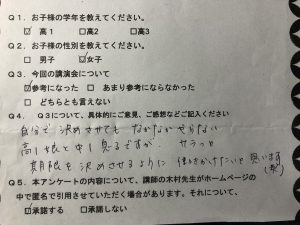 Q1. お子様の学年を教えてください。
☑高1 □高2 □高3
Q2. お子様の性別を教えてください。
□男子 ☑女子
Q3. 今回の講演会について
☑参考になった □あまり参考にならなかった
□どちらとも言えない
Q4. Q3について、具体的にご意見、ご感想などご記入ください
自分で決めさせてもなかなかやらない
高1娘と中1男子ですが、サラっと
期限を決めさせるように 働きかけたいと思います
Q5. 本アンケートの内容について、講師の木村先生がホームページの
中で匿名で引用させていただく場合があります。それについて、
☑承諾する □承諾しない